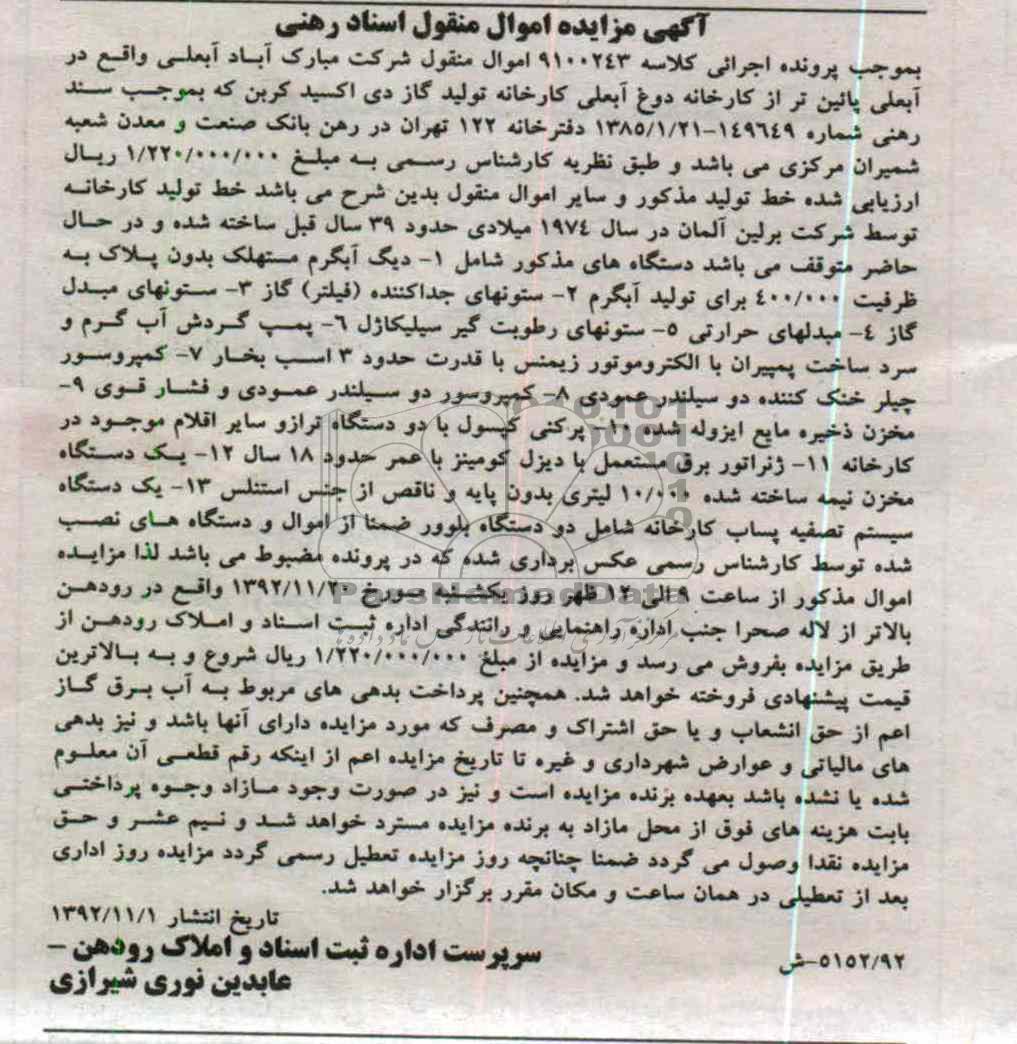 آگهی مزایده اموال منقول اسناد رهنی
بموجب پرونده اجرائی کلاسه ۹۱۰۰۲٤۳ اموال منقول شرکت مبارک آباد آبعلی واقع در
آبعلی پائین تر از کارخانه دوغ آبعلی کارخانه تولید گاز دی اکسید کربن که بموجب سند
رهنی شماره ۱٤۹٦٤۹-۱۳۸۵/۱/۲۱ دفترخانه ۱۲۲ تهران در رهن بانک صنعت و معدن شعبه
شمیران مرکزی می باشد و طبق نظریه کارشناس رسمی به مبلغ ۱/۲۲۰/۰۰۰/۰۰۰ ریال
ارزیابی شده خط تولید مذکور و سایر اموال منقول بدین شرح می باشد خط تولید کارخانه
توسط شرکت برلین آلمان در سال ۱۹۷٤ میلادی حدود ۳۹ سال قبل ساخته شده و در حال
حاضر متوقف می باشد دستگاه های مذکور شامل ۱- دیگ آبگرم مستهلک بدون پلاک به
ظرفیت ٤۰۰/۰۰۰ برای تولید آبگرم ۲- ستونهای جداکننده (فیلتر) گاز ۳- ستونهای مبدل
گاز ٤- مبدلهای حرارتی ۵- ستونهای رطوبت گیر سیلیکاژل ٦- پمپ گردش آب گرم و
سرد ساخت پمپیران با الکتروموتور زیمنس با قدرت حدود ۳ اسب بخار ۷- کمپروسور
چیلر خنک کننده دو سیلندر عمودی ۸- کمپروسور دو سیلندر عمودی و فشار قوی ۹-
مخزن ذخیره مایع ایزوله شده ۱۰- پرکنی کپسول با دو دستگاه ترازو سایر اقلام موجود در
کارخانه ۱۱- ژنراتور برق مستعمل با دیزل کومینز با عمر حدود ۱۸ سال ۱۲- یک دستگاه
مخزن نیمه ساخته شده ۱۰/۰۰۰ لیتری بدون پایه و ناقص از جنس استنلس ۱۳- یک دستگاه
سیستم تصفیه پساب کارخانه شامل دو دستگاه بلوور ضمنا از اموال و دستگاه های نصب
شده توسط کارشناس رسمی عکس برداری شده که در پرونده مضبوط می باشد لذا مزایده
اموال مذکور از ساعت ۹ الی ۱۲ ظهر روز یکشنبه مورخ ۱۳۹۲/۱۱/۲۰ واقع در رودهن
بالاتر از لاله صحرا جنب اداره راهنمایی و رانندگی اداره ثبت اسناد و املاک رودهن از
طریق مزایده بفروش می رسد و مزایده از مبلغ ۱/۲۲۰/۰۰۰/۰۰۰ ریال شروع و به بالاترین
قیمت پیشنهادی فروخته خواهد شد. همچنین پرداخت بدهی های مربوط به آب برق گاز
اعم از حق انشعاب و یا حق اشتراک و مصرف که مورد مزایده دارای آنها باشد و نیز بدهی
های مالیاتی و عوارض شهرداری و غیره تا تاریخ مزایده اعم از اینکه رقم قطعی آن معلوم
شده یا نشده باشد بعهده برنده مزایده است و نیز در صورت وجود مازاد وجوه پرداختی
بابت هزینه های فوق از محل مازاد به برنده مزایده مسترد خواهد شد و نیم عشر و حق
مزایده نقدا وصول می گردد ضمنا چنانچه روز مزایده تعطیل رسمی گردد مزایده روز اداری
بعد از تعطیلی در همان ساعت و مکان مقرر برگزار خواهد شد.
تاریخ انتشار ۱۳۹۲/۱۱/۱
سرپرست اداره ثبت اسناد و املاک رودهن -
عابدین نوری شیرازی
۵۱۵۲/۹۲-ش
ParsNamadData